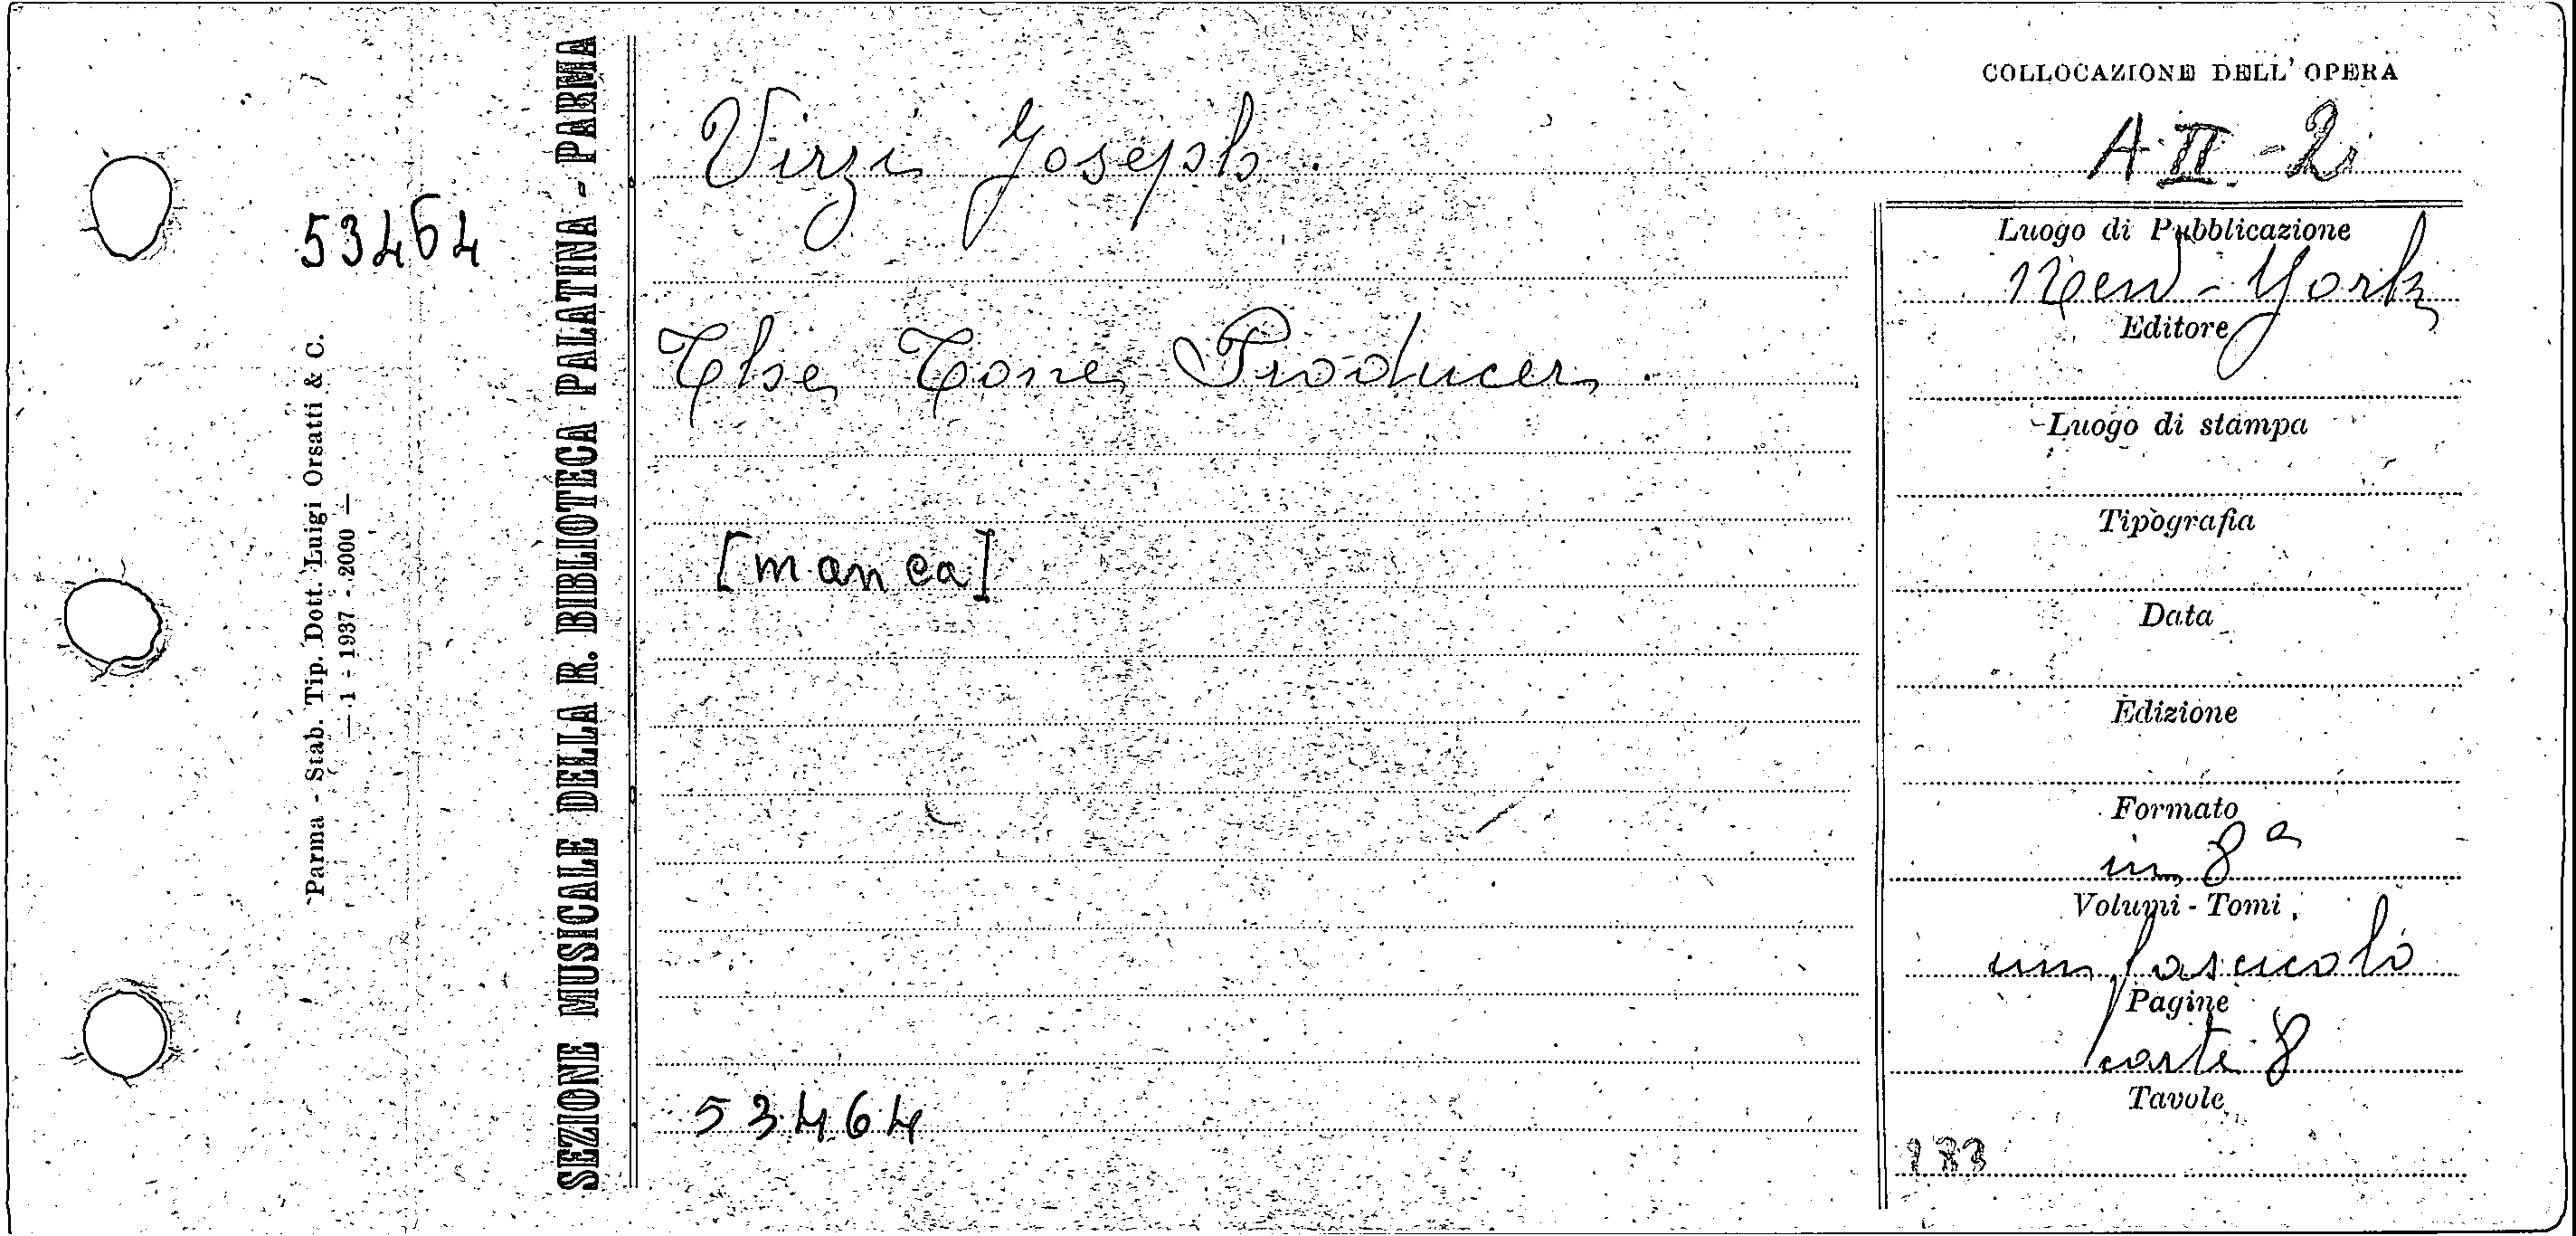 53464
Parma - Stab. Tip. Dott. Luigi Orsati & C.
— 1 - 1937 - 2000 —
SEZIONE MUSICALE DELLA R. BIBLIOTECA PALATINA - PARMA
Virzi Joseph.
The Tone Producer.
[manca]
53464
COLLOCAZIONE DELL' OPERA
A II - 2i
Luogo di Pubblicazione
New-York
Editore
Luogo di stampa
Tipografia
Data
Edizione
Formato
in 8ª
Volumi - Tomi
un fascicolo
Pagine
carte 8
Tavole